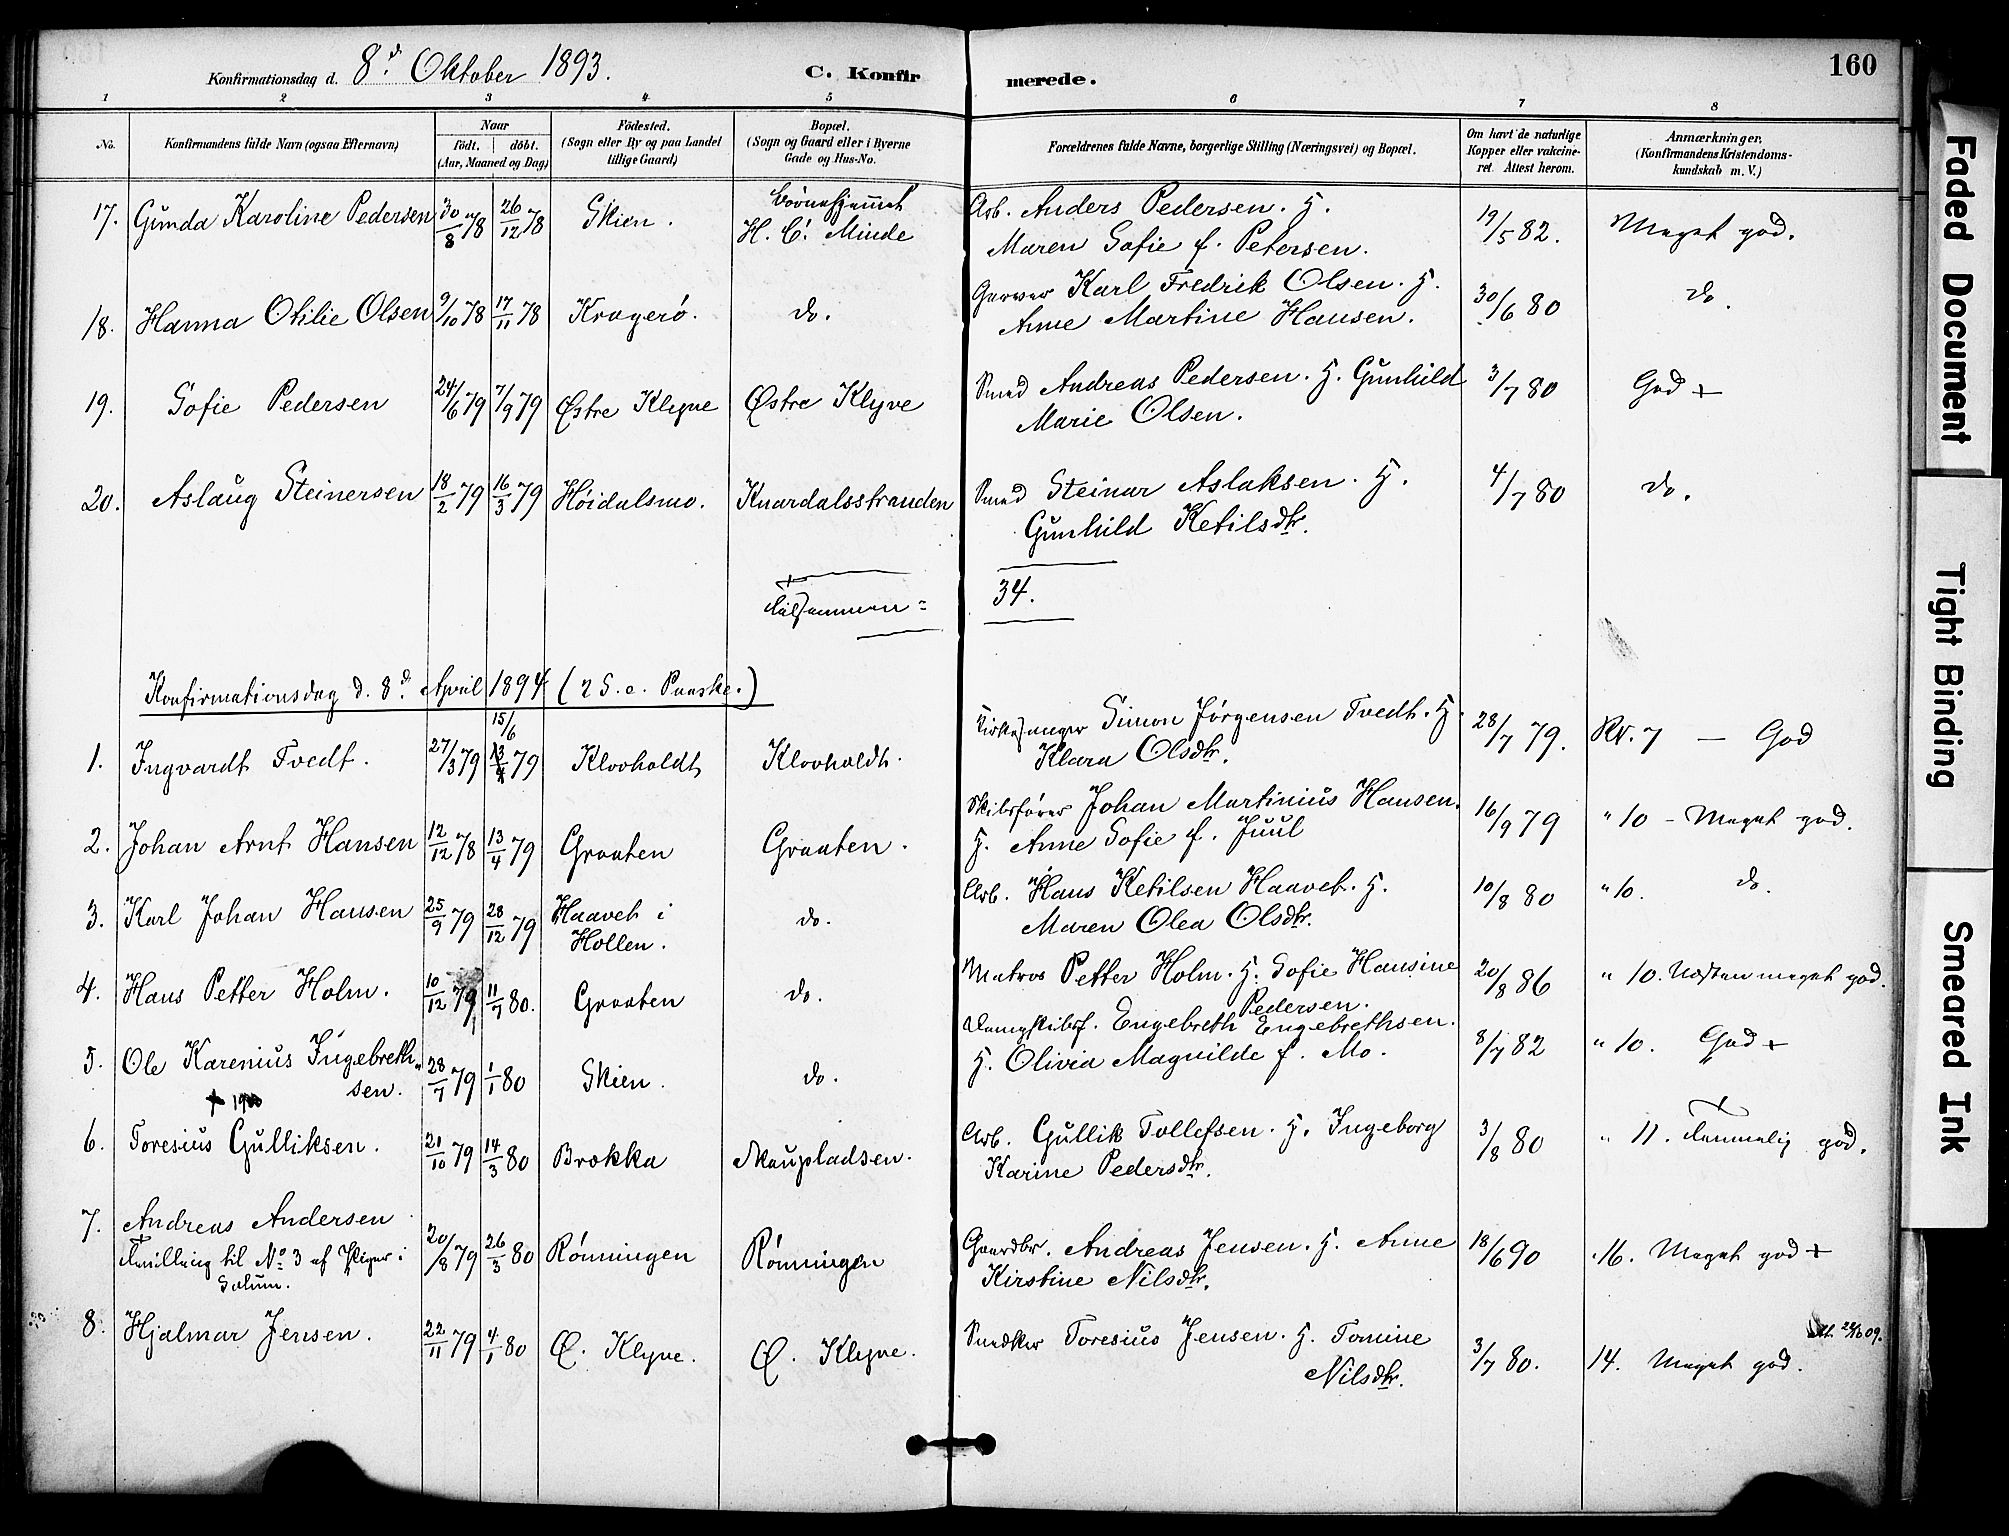 Konfirmationsdag d. 8.d Oktober 1893. C. Konfir merede. 160
1 2 3 4 5 6 7 8
No. Konfirmandens fulde Navn (ogsaa Efternavn)
Naar
födt. döbt.
(Aar, Maaned og Dag)
Födested.
(Sogn eller By og paa Landet
tillige Gaard)
Bopæl.
(Sogn og Gaard eller i Byerne
Gade og Hus-No.
Forældrenes fulde Navne, borgerlige Stilling (Næringsvei) og Bopæl.
Om havt de naturlige
Kopper eller vakcine-
ret. Attest herom.
Anmærkninger.
(Konfirmandens Kristendoms-
kundskab m. V.)
17. Gunda Karoline Pedersen 30/8 78 26/12 78 Skien. Börnehjemmet
H. C. Minde
Arb. Anders Pedersen. H.
Maren Sofie f. Petersen. 19/5 82. Meget god.
18. Hanna Otilie Olsen 9/10 78 17/11 78 Kragerö. do.
Garver Karl Fredrik Olsen. H.
Anne Martine Hansen. 30/6 80 do.
19. Sofie Pedersen 24/6 79 7/9 79 Østre Klyve Østre Klyve
Smed Andreas Pedersen. H. Gunhild
Marie Olsen. 3/7 80 God +
20. Aslaug Steinersen 18/2 79 16/3 79 Höidalsmo. Knardalsstranden
Smed Steinar Aslaksen. H.
Gunhild Ketilsdtr. 4/7 80 do.
Tilsammen = 34.
Konfirmationsdag d. 8.d April 1894 (2 S. e. Paaske.)
15/6
1. Ingvardt Tvedt. 27/3 79 13/4 79 Klovholdt Klovholdt.
Kirkesanger Simon Jörgensen Tvedt. H.
Klara Olsdtr. 28/7 79. Kv. 7 — God
2. Johan Arnt Hansen 12/12 78 13/4 79 Graaten Graaten.
Skibsförer Johan Martinius Hansen.
H. Anne Sofie f. Juul 16/9 79 " 10 - Meget god.
3. Karl Johan Hansen 25/9 79 28/12 79 Haavet i
Hollen. do.
Arb. Hans Ketilsen Haavet. H.
Maren Olea Olsdtr. 10/8 80 " 10. do.
4. Hans Petter Holm. 10/12 79 11/7 80. Graaten do.
Matros Petter Holm. H. Sofie Hansine
Pedersen. 20/8 86 " 10. Næsten meget god.
5. Ole Karenius Ingebreth"
sen. 28/7 79 1/1 80 Skien. do.
+ 1900
Dampskibsf. Engebreth Engebrethsen.
H. Olivia Magnilde f. Mo. 8/7 82 " 10. God +
6. Toresius Gulliksen. 21/10 79 14/3 80 Brokka Maupladsen.
Arb. Gullik Tollefsen. H. Ingeborg
Karine Pedersdtr. 3/8 80 " 11. Temmelig god.
7. Andreas Andersen
Tvilling til No 3 af Piger i
Solum. 20/8 79 26/3 80 Rönningen Rönningen
Gaardbr. Andreas Jensen. H. Anne
Kirstine Nilsdtr. 18/6 90 " 16. Meget god +
8. Hjalmar Jensen. 22/11 79 4/1 80 Ø. Klyve. Ø. Klyve.
Snedker Toresius Jensen. H. Tomine
Nilsdtr. 3/7 80. 14. Meget god.
Faded Document
Tight Binding
Smeared Ink